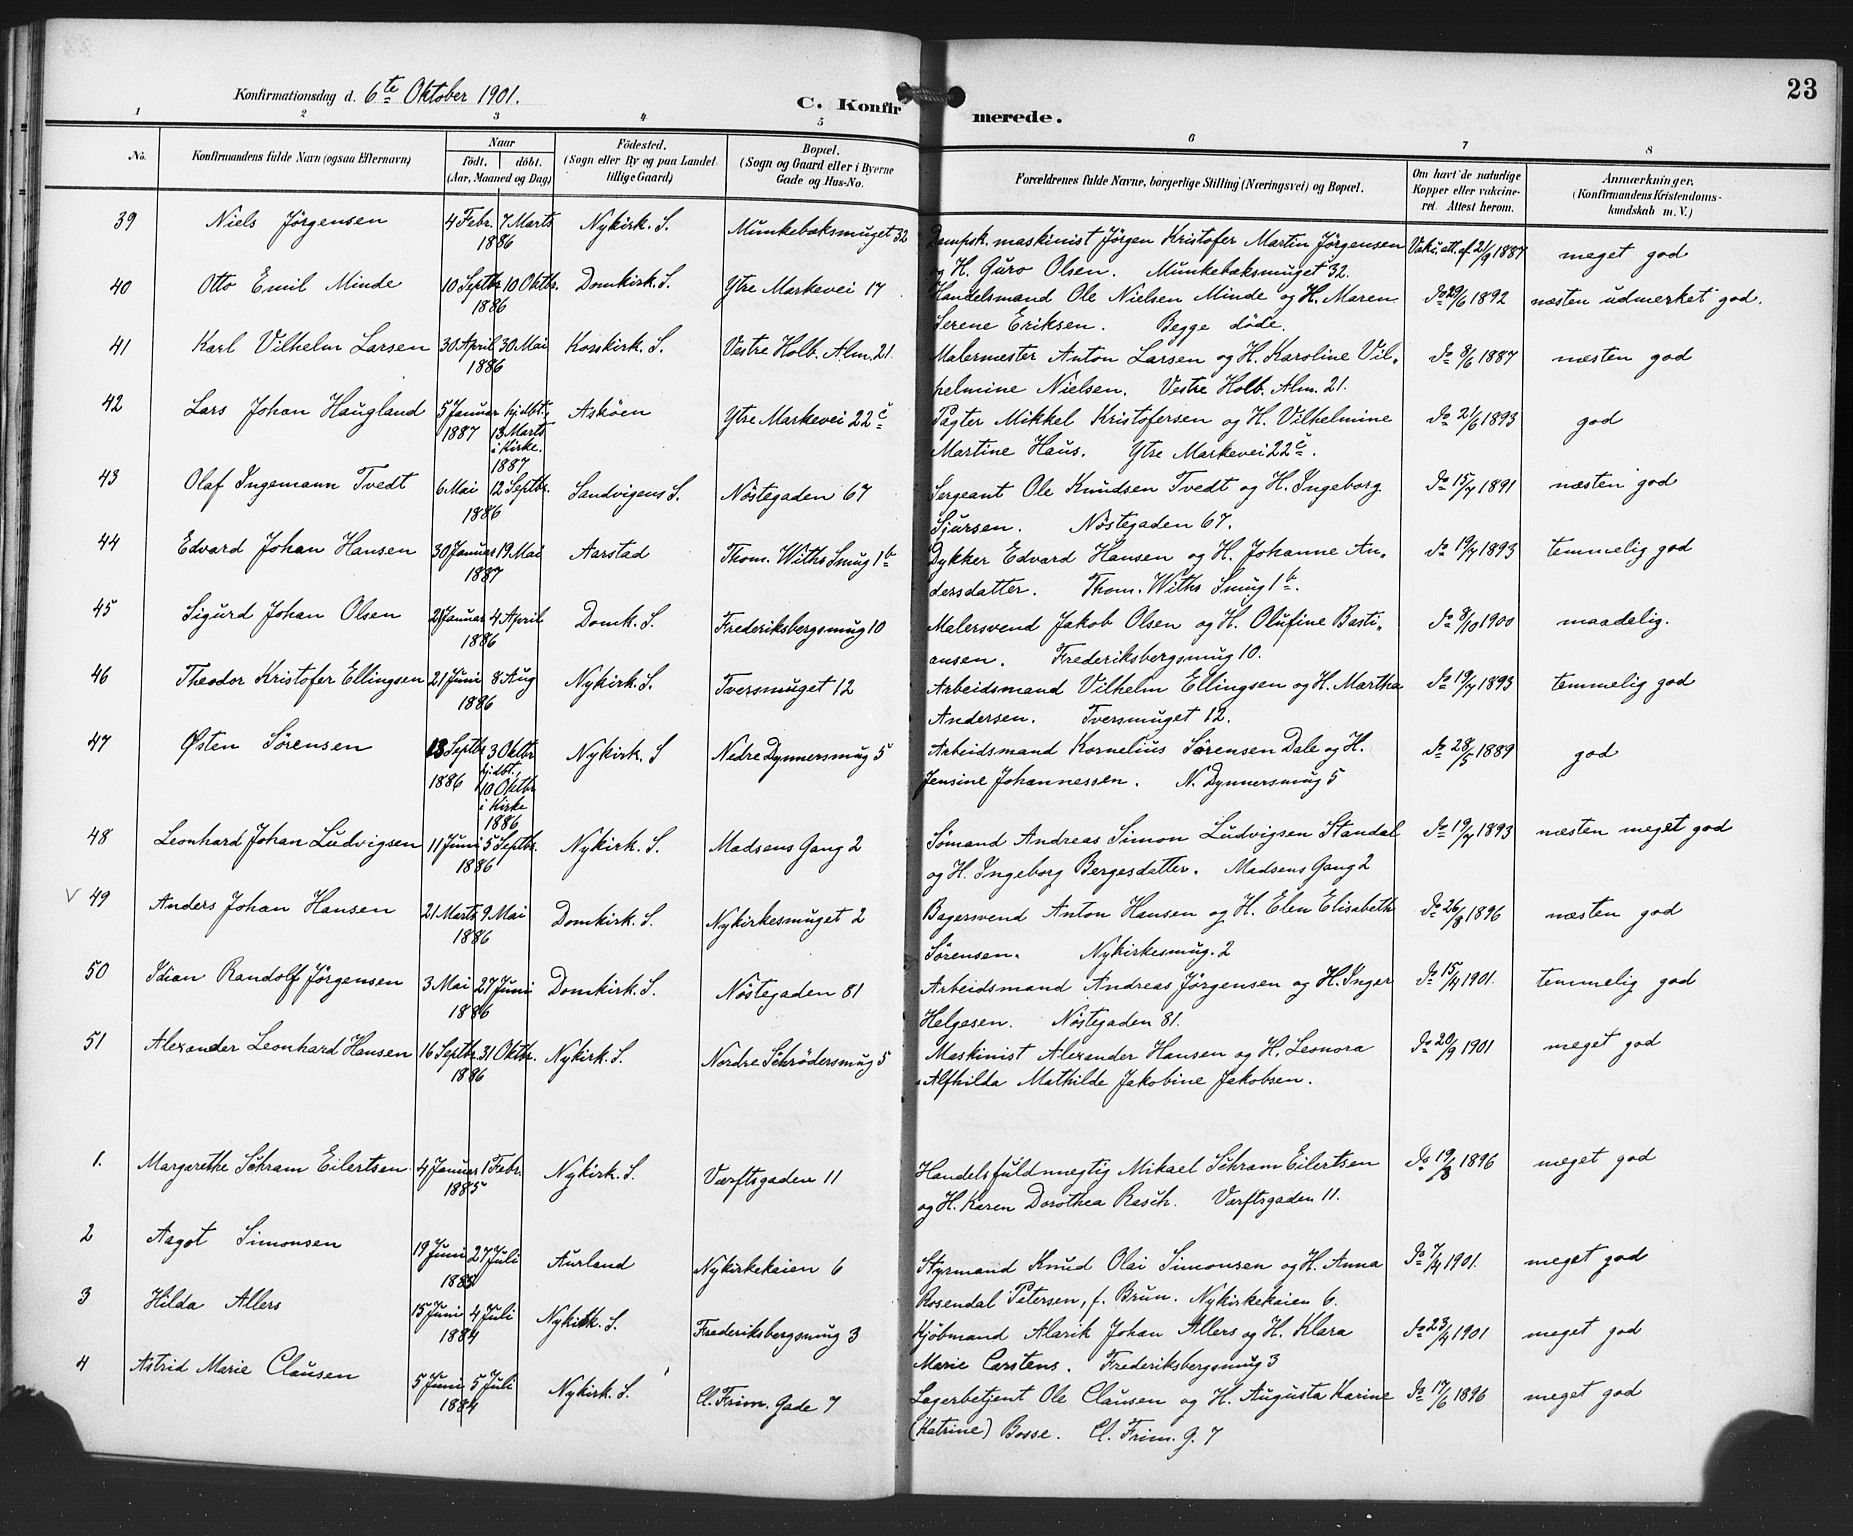 23
Konfirmationsdag d. 6te Oktober 1901.
C. Konfirmerede.
1 2 3 4 5 6 7 8
No. Konfirmandens fulde Navn (ogsaa Efternavn) Naar födt. döbt. (Aar, Maaned og Dag) Födested. (Sogn eller By og paa Landet tillige Gaard) Bopæl. (Sogn og Gaard eller i Byerne Gade og Hus-No. Forældrenes fulde Navne, borgerlige Stilling (Næringsvei) og Bopæl. Om havt de naturlige Kopper eller vakcineret. Attest herom. Anmærkninger. (Konfirmandens Kristendomskundskab m. V.)
39 Niels Jörgensen 4 Febr. 7 Marts Nykirk. S. Munkebæksmuget 32 Dampsk. maskinist Jörgen Kristofer Martin Jörgensen Vakc. att. af 21/9 1887 meget god
1886 og H. Guro Olsen. Munkebæksmuget 32.
40 Otto Emil Minde 10 Septbr. 10 Oktbr. Domkirk. S. Ytre Markevei 17 Handelsmand Ole Nielsen Minde og H. Maren Do 29/6 1892 næsten udmerket god.
1886 Serene Eriksen. Begge döde.
41 Karl Vilhelm Larsen 30 April 30 Mai Korskirk. S. Vestre Holb. Alm. 21. Malermester Anton Larsen og H. Karoline Vil- Do 8/6 1887 næsten god
1886 helmine Nielsen. Vestre Holb. Alm. 21.
42 Lars Johan Haugland 5 Januar hjdbt. Asköen Ytre Markevei 22c Pagter Mikkel Kristofersen og H. Vilhelmine Do 21/6 1893 god
1887 13 Marts i Kirke. 1887 Martine Haus. Ytre Markevei 22c.
43 Olaf Ingemann Tvedt 6 Mai 12 Septbr. Sandvigens S. Nöstegaden 67 Sergeant Ole Knudsen Tvedt og H. Ingeborg Do 15/7 1891 næsten god
1886 Sjursen. Nöstegaden 67.
44 Edvard Johan Hansen 30 Januar 19 Mai Aarstad Thom. Withs Smug 1b Dykker Edvard Hansen og H. Johanne An- Do 19/7 1893 temmelig god
1887 dersdatter. Thom. Withs Smug 1b.
45 Sigurd Johan Olsen 21 Januar 4 April Domk. S. Frederiksbergsmug 10 Malersvend Jakob Olsen og H. Olufine Basti- Do 8/10 1900 maadelig.
1886 ansen. Frederiksbergsmug 10.
46 Theodor Kristofer Ellingsen 21 Juni 8 Aug Nykirk. S. Tversmuget 12 Arbeidsmand Vilhelm Ellingsen og H. Martha Do 19/7 1893 temmelig god
1886 Andersen. Tversmuget 12.
47 Østen Sörensen 13 Septbr. 3 Oktbr Nykirk. S Nedre Dynnersmug 5 Arbeidsmand Kornelius Sörensen Dale og H. Do 28/5 1889 god
1886 hjdbt. 10 Oktbr i Kirke 1886 Jensine Johannessen. N. Dynnersmug 5
48 Leonhard Johan Ludvigsen 11 Juni 5 Septbr. Nykirk. S. Madsens Gang 2 Sömand Andreas Simon Ludvigsen Standal Do 19/7 1893 næsten meget god
1886 og H. Ingeborg Bergesdatter. Madsens Gang 2
V 49 Anders Johan Hansen 21 Marts 9 Mai Domkirk. S. Nykirkesmuget 2 Bagersvend Anton Hansen og H. Elen Elisabeth Do 26/8 1896 næsten god
1886 Sörensen. Nykirkesmug. 2
50 Idian Randolf Jörgensen 3 Mai 27 Juni Domkirk. S. Nöstegaden 81 Arbeidsmand Andreas Jörgensen og H. Inger Do 15/4 1901. temmelig god
1886 Helgesen. Nöstegaden 81.
51 Alexander Leonhard Hansen 16 Septbr. 31 Oktbr. Nykirk. S. Nordre Schrödersmug 5 Maskinist Alexander Hansen og H. Leonora Do 20/9 1901 meget god
1886 Alfhilda Mathilde Jakobine Jakobsen.
1. Margarethe Schram Eilertsen 4 Januar 1 Febr. Nykirk. S. Værftsgaden 11 Handelsfuldmægtig Mikael Schram Eilertsen Do 19/8 1896 meget god
1885 og H. Karen Dorothea Rasch. Værftsgaden 11.
2 Aagot Simonsen 19 Juni 27 Juli Aurland Nykirkekaien 6 Styrmand Knud Olai Simonsen og H. Anna Do 7/4 1901. meget god
Rosendal Petersen, f. Brun. Nykirkekaien 6.
3 Hilda Allers 15 Juni 4 Juli Nykirk. S. Frederiksbergsmug 3 Kjöbmand Alarik Johan Allers og H. Klara Do 23/4 1901 meget god
1884 Marie Carstens. Frederiksbergsmug 3
4 Astrid Marie Clausen 5 Juni 5 Juli Nykirk. S. Cl. Frim. Gade 7 Lagerbetjent Ole Clausen og H. Augusta Karine Do 17/6 1896 meget god
1884 (Katrine) Bosse. Cl. Frim. G. 7